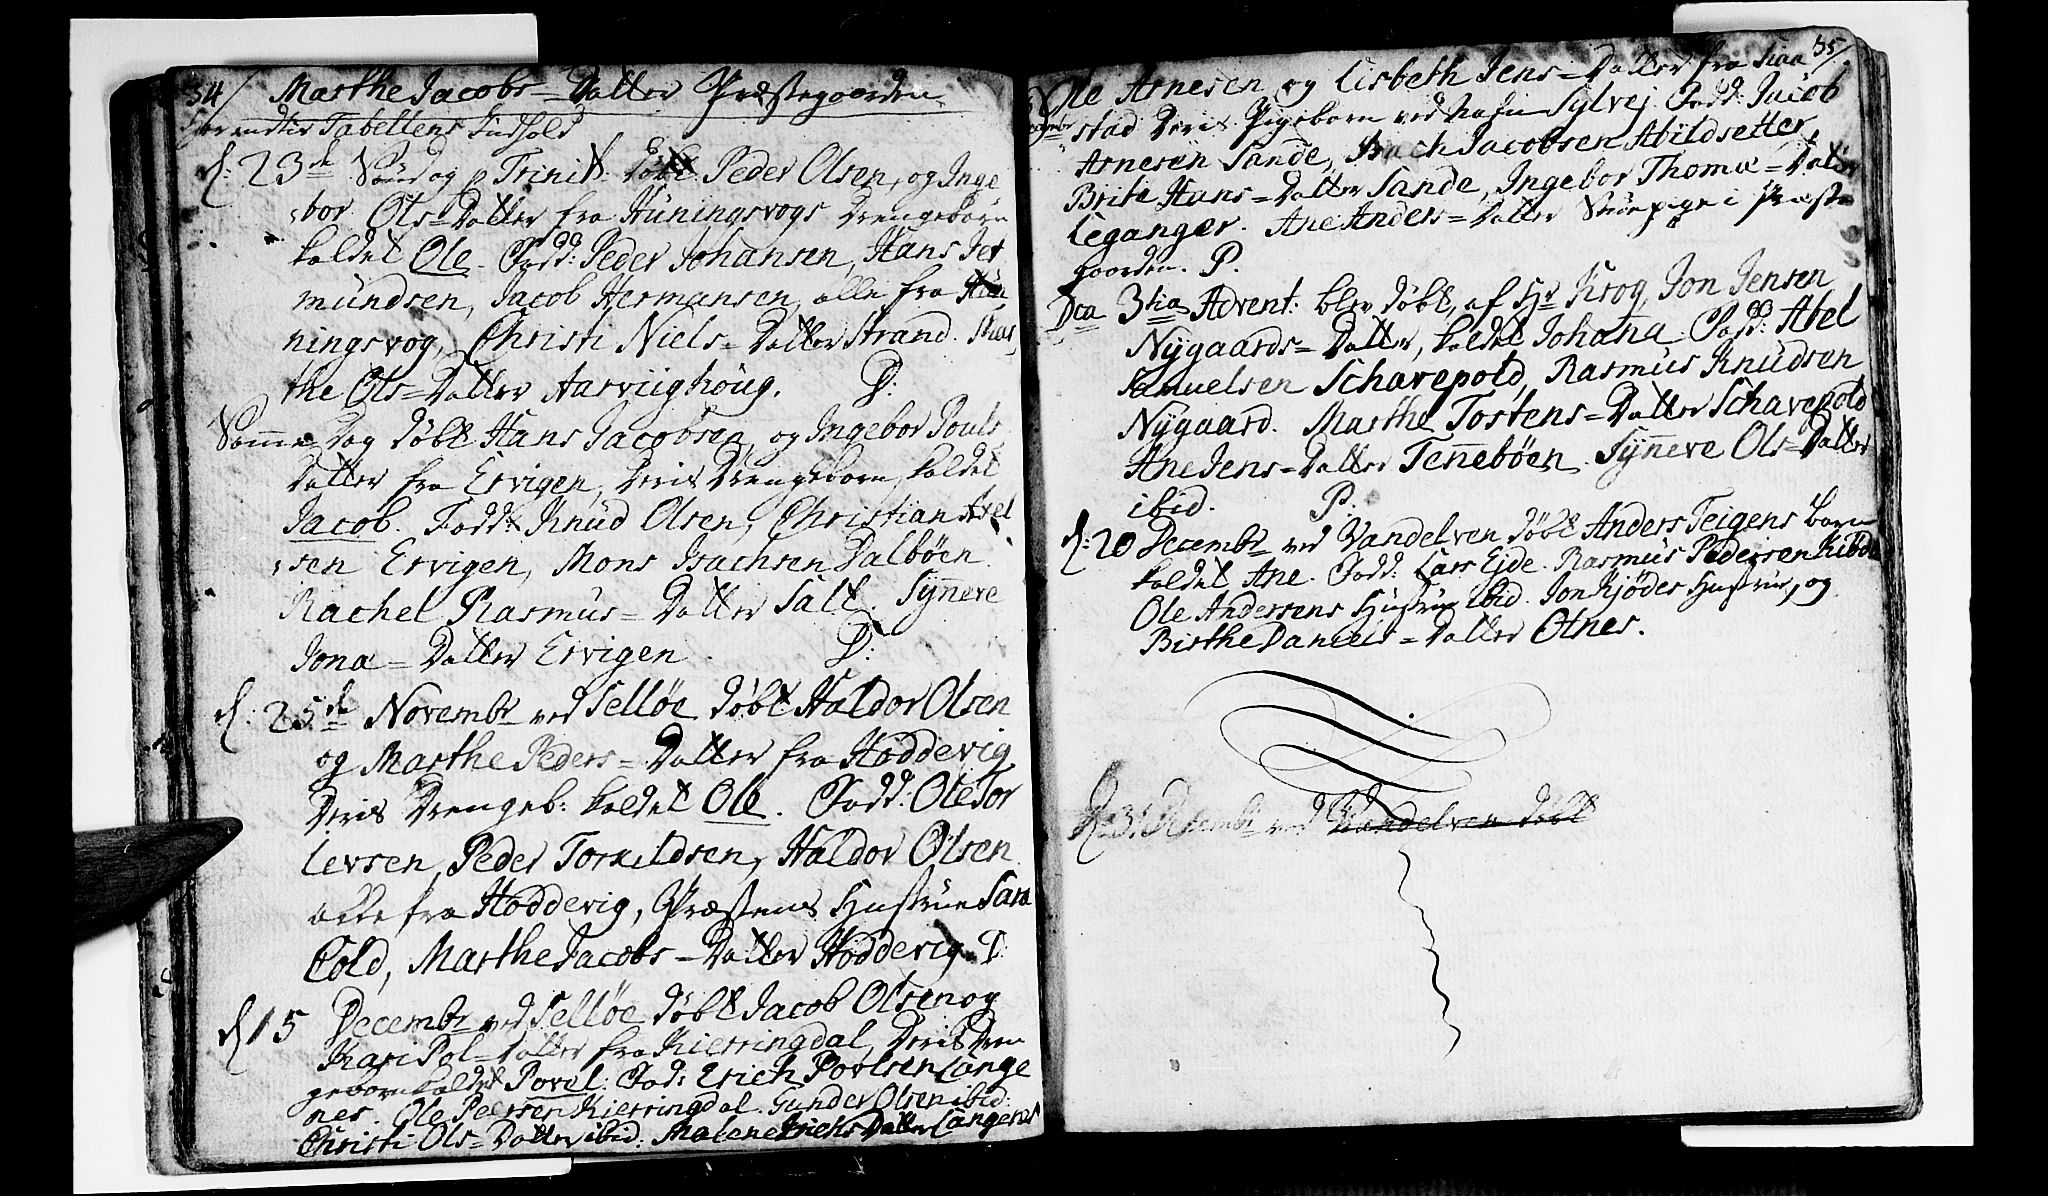 34/ Marthe Jacobs=Datter Præstegaarden
Tabellens Indhold
d: 23de Søndag p Trinit: døbt Peder Olsen, og Inge
bor Ols=Datter fra Huningsvogs Drengebarn
kaldet Ole. Fadd: Peder Johansen, Hans Jet
mundsen, Jacob Hermansen, alle fra Hu
ningsvog, Christi Niels=Datter Strand. Mar
the Ols=Datter Aarviighoug. D:
Samme Dag døbt Hans Jacobsen, og Ingebor Pouls
Datter fra Ervigen, Deris Drengebarn, kaldet
Jacob. Fadd: Knud Olsen, Christian Axel
sen Ervigen, Mons Isachsen Dalbøen.
Rachel Rasmus=Datter Salt. Synneve
Jonæ=Datter Ervigen. D:
d: 25de Novembr ved Selløe døbt Haldor Olsen
og Marthe Peders=Datter fra Hoddevig
Deris Drengeb: kaldet Ole. Fadd: Ole Tor
levsen, Peder Torkildsen, Haldor Olsen
alle fra Hoddevig, Præstens Hustrue Sara
Cold, Marthe Jacobs=Datter Hoddevig. D
d 15 Decembr ved Selløe døbt Jacob Olsen og
Kari Pol=Datter fra Kierringdal, Deris Dren
gebarn kaldet Povel. Fad: Erich Povlsen Lange
nes. Ole Peersen Kierringdal. Gunder Olsen ibid:
Christi Ols=Datter ibid: Malene Erichs Datter Langenes
35/
Ole Arnesen og Lisbeth Jens=Datter fra Siaa
stad Deris Pigebarn ved Nafn Sylvej. Fadd: Jacob
Arnesen Sande, Isach Jacobsen Abildsetter,
Brite Hans=Datter Sande, Ingebor Thomæ=Datter
Leganger. Ane Anders=Datter Stuepige i Præste
gaarden. P.
Dca 3tia Advent: blev døbt, af Hr Krog, Jon Jensen
Nygaards=Datter, kaldet Johana. Fadd: Abel
Samuelsen Schavepold, Rasmus Knudsen
Nygaard. Marthe Tostens=Datter Schavepold
Ane Jens=Datter Tennebøen. Synneve Ols=Datter
ibid. P.
d: 20 Decembr ved Vandelven døbt Anders Teigens barn
kaldet Ane. Fadd: Lars Ejde. Rasmus Pedersen
Ole Andersens Hustrue ibid. Jon Kjødes Hustrue, og
Birthe Daniels=Datter Otnes.
d. 31 Decembr ved Vandelven døbt